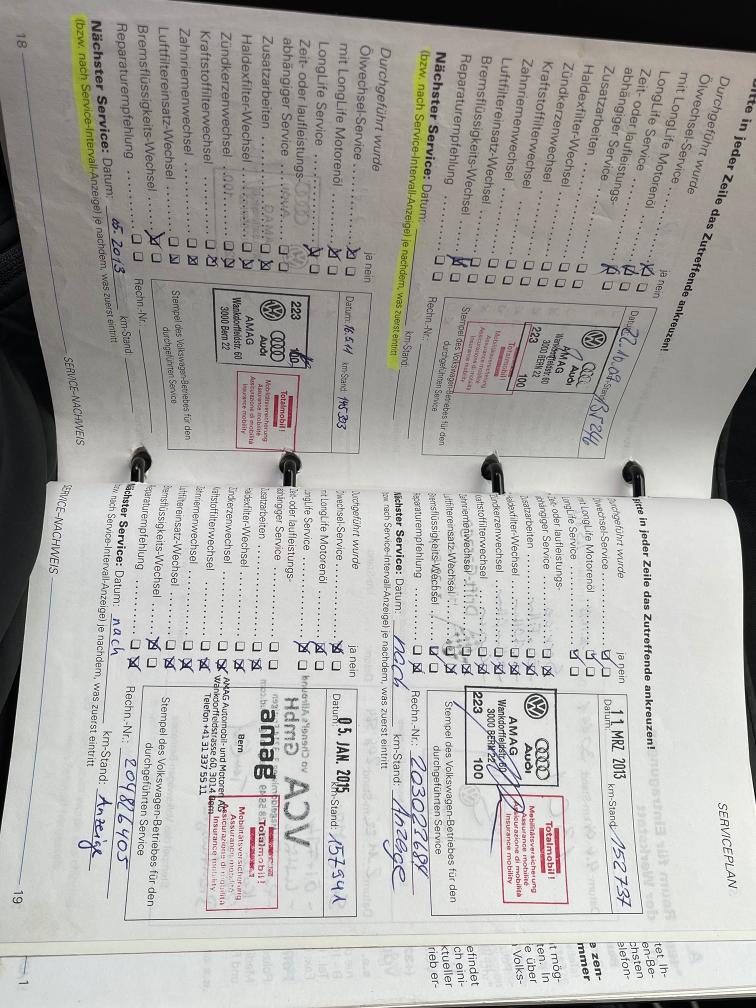 Bitte in jeder Zeile das Zutreffende ankreuzen!
Durchgeführt wurde
ja nein
Ölwechsel-Service
mit LongLife Motorenöl
LongLife Service
Zeit- oder laufleistungs-
abhängiger Service
Zusatzarbeiten
Haldexfilter-Wechsel
Zündkerzenwechsel
Kraftstoffilterwechsel
Zahnriemenwechsel
Luftfiltereinsatz-Wechsel
Bremsflüssigkeits-Wechsel
Reparaturempfehlung
Nächster Service: Datum:
km-Stand:
(bzw. nach Service-Intervall-Anzeige) je nachdem, was zuerst eintritt
Audi
AMAG
Wankdorffeldstr. 60
3000 BERN 22
223 100
Totalmobil!
Mobilitätsversicherung
Assurance mobilité
Assicurazione di mobilità
Insurance mobility
Stempel des Volkswagen-Betriebes für den
durchgeführten Service
Rechn.-Nr.:
Durchgeführt wurde
ja nein
Ölwechsel-Service
mit LongLife Motorenöl
LongLife Service
Zeit- oder laufleistungs-
abhängiger Service
Zusatzarbeiten
Haldexfilter-Wechsel
Zündkerzenwechsel
Kraftstoffilterwechsel
Zahnriemenwechsel
Luftfiltereinsatz-Wechsel
Bremsflüssigkeits-Wechsel
Reparaturempfehlung
Nächster Service: Datum: 05.2013
km-Stand:
(bzw. nach Service-Intervall-Anzeige) je nachdem, was zuerst eintritt
Datum: 16.5.11 km-Stand:
223 100
Audi
AMAG
Wankdorffeldstr. 60
3000 BERN 22
Totalmobil!
Mobilitätsversicherung
Assurance mobilité
Assicurazione di mobilità
Insurance mobility
Stempel des Volkswagen-Betriebes für den
durchgeführten Service
Rechn.-Nr.:
18
SERVICE-NACHWEIS
SERVICEPLAN
Bitte in jeder Zeile das Zutreffende ankreuzen!
Durchgeführt wurde
ja nein
Ölwechsel-Service
mit LongLife Motorenöl
LongLife Service
Zeit- oder laufleistungs-
abhängiger Service
Zusatzarbeiten
Haldexfilter-Wechsel
Zündkerzenwechsel
Kraftstoffilterwechsel
Zahnriemenwechsel
Luftfiltereinsatz-Wechsel
Bremsflüssigkeits-Wechsel
Reparaturempfehlung
Nächster Service: Datum: nach
km-Stand: Anzeige
(bzw. nach Service-Intervall-Anzeige) je nachdem, was zuerst eintritt
Datum: 11. MRZ. 2013 km-Stand: 152737
Audi
AMAG
Wankdorffeldstr. 60
3000 BERN 22
223 100
Totalmobil!
Mobilitätsversicherung
Assurance mobilité
Assicurazione di mobilità
Insurance mobility
Stempel des Volkswagen-Betriebes für den
durchgeführten Service
Rechn.-Nr.:
Durchgeführt wurde
ja nein
Ölwechsel-Service
mit LongLife Motorenöl
LongLife Service
Zeit- oder laufleistungs-
abhängiger Service
Zusatzarbeiten
Haldexfilter-Wechsel
Zündkerzenwechsel
Kraftstoffilterwechsel
Zahnriemenwechsel
Luftfiltereinsatz-Wechsel
Bremsflüssigkeits-Wechsel
Reparaturempfehlung
Nächster Service: Datum: nach
km-Stand: Anzeige
(bzw. nach Service-Intervall-Anzeige) je nachdem, was zuerst eintritt
Datum: 05. JAN. 2015 km-Stand: 157941
amag
Bern
AMAG Automobil- und Motoren AG
Wankdorffeldstrasse 60, 3014 Bern
Telefon +41 31 337 55 11
Totalmobil!
Mobilitätsversicherung
Assurance mobilité
Assicurazione di mobilità
Insurance mobility
Stempel des Volkswagen-Betriebes für den
durchgeführten Service
Rechn.-Nr.: 204816405
SERVICE-NACHWEIS
19